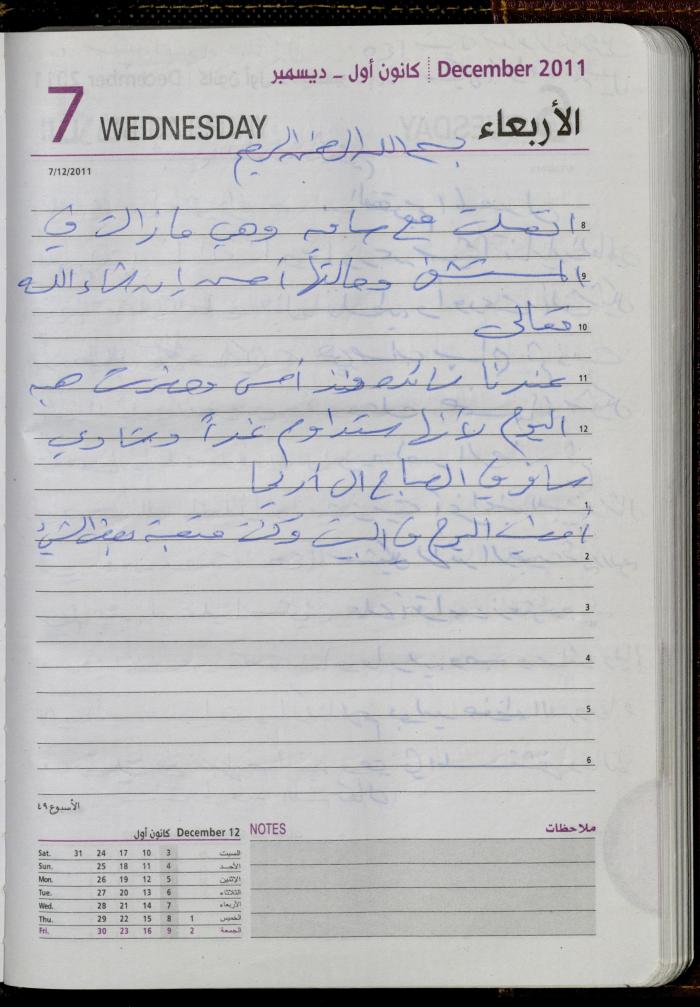 December 2011 كانون أول ـ ديسمبر
7 WEDNESDAY الأربعاء
بسم الله الرحمن الرحيم
7/12/2011
اتصلت مع سافيه وهي ما زالت في 8
المستشفى وحالتها أحسن إن شاء الله 9
تعالى 10
عندنا منذ أمس وحضرت هبه 11
اليوم لأنها ستداوم غداً 12
سافرتي الصباح الى أريحا
1
أمضيت اليوم في البيت وكنت متعبة بعض الشيء
2
3
4
5
6
الأسبوع ٤٩
December 12 كانون أول
Sat. 31 24 17 10 3 السبت
Sun. 25 18 11 4 الأحد
Mon. 26 19 12 5 الإثنين
Tue. 27 20 13 6 الثلاثاء
Wed. 28 21 14 7 الأربعاء
Thu. 29 22 15 8 1 الخميس
Fri. 30 23 16 9 2 الجمعة
NOTES ملاحظات